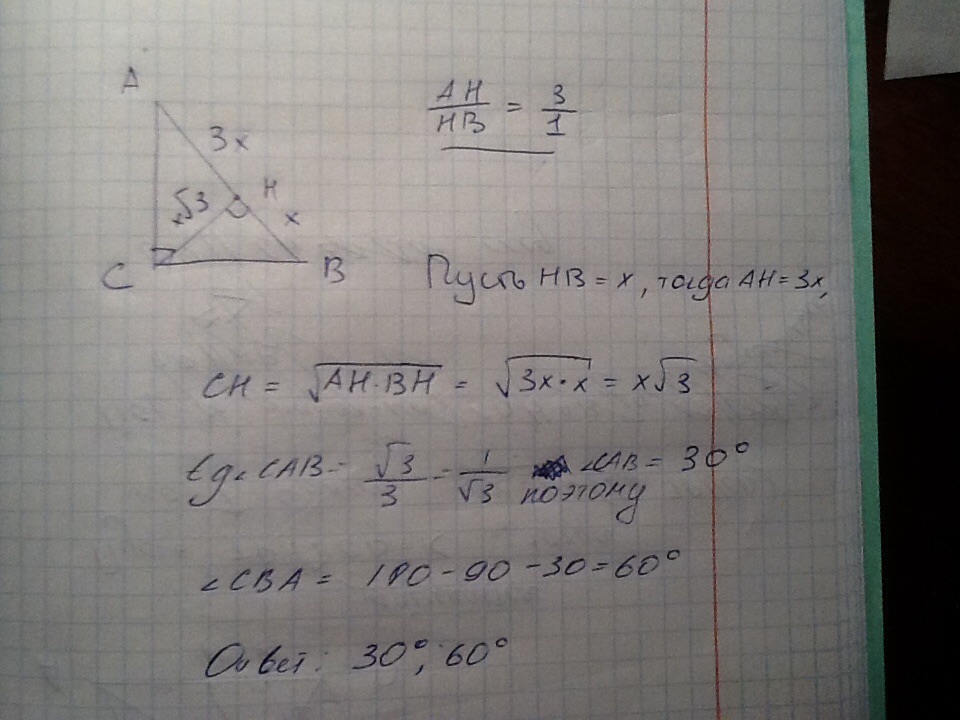 A
3x
H
x√3
x
C
B
AH/HB = 3/1
Пусть HB = x, тогда AH = 3x,
CH = √AH·BH = √3x·x = x√3
tg∠CAB = √3/3 = 1/√3 поэтому ∠CAB = 30°
∠CBA = 180 - 90 - 30 = 60°
Ответ: 30°; 60°